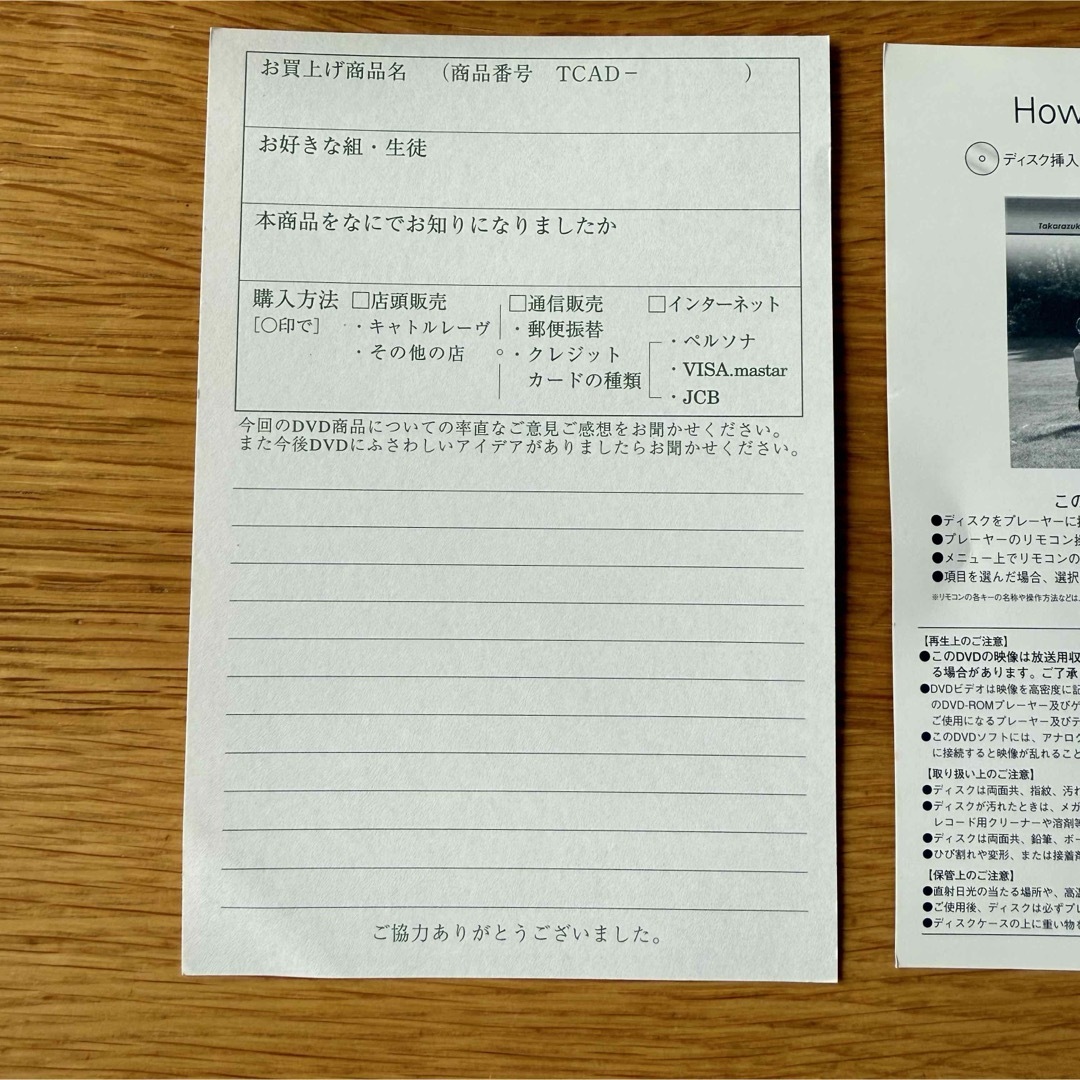 お買上げ商品名 （商品番号 TCAD− ）
お好きな組・生徒
本商品をなにでお知りになりましたか
購入方法 □店頭販売 □通信販売 □インターネット
[○印で] ・キャトルレーヴ ・郵便振替
・その他の店 ・クレジット ・ペルソナ
カードの種類 ・VISA.mastar
・JCB
今回のDVD商品についての率直なご意見ご感想をお聞かせください。
また今後DVDにふさわしいアイデアがありましたらお聞かせください。
ご協力ありがとうございました。
How
ディスク挿入
Takarazuk
この
●ディスクをプレーヤーに
●プレーヤーのリモコン
●メニュー上でリモコンの
●項目を選んだ場合、選択
※リモコンの各キーの名称や操作方法などは、
【再生上のご注意】
●このDVDの映像は放送用収
る場合があります。ご了承
●DVDビデオは映像を高密度に記
のDVD-ROMプレーヤー及びゲ
ご使用になるプレーヤー及びデ
●このDVDソフトには、アナログ
に接続すると映像が乱れること
【取り扱い上のご注意】
●ディスクは両面共、指紋、汚れ
●ディスクが汚れたときは、メガ
レコード用クリーナーや溶剤等
●ディスクは両面共、鉛筆、ボー
●ひび割れや変形、または接着剤
【保管上のご注意】
●直射日光の当たる場所や、高温
●ご使用後、ディスクは必ずプレ
●ディスクケースの上に重い物を